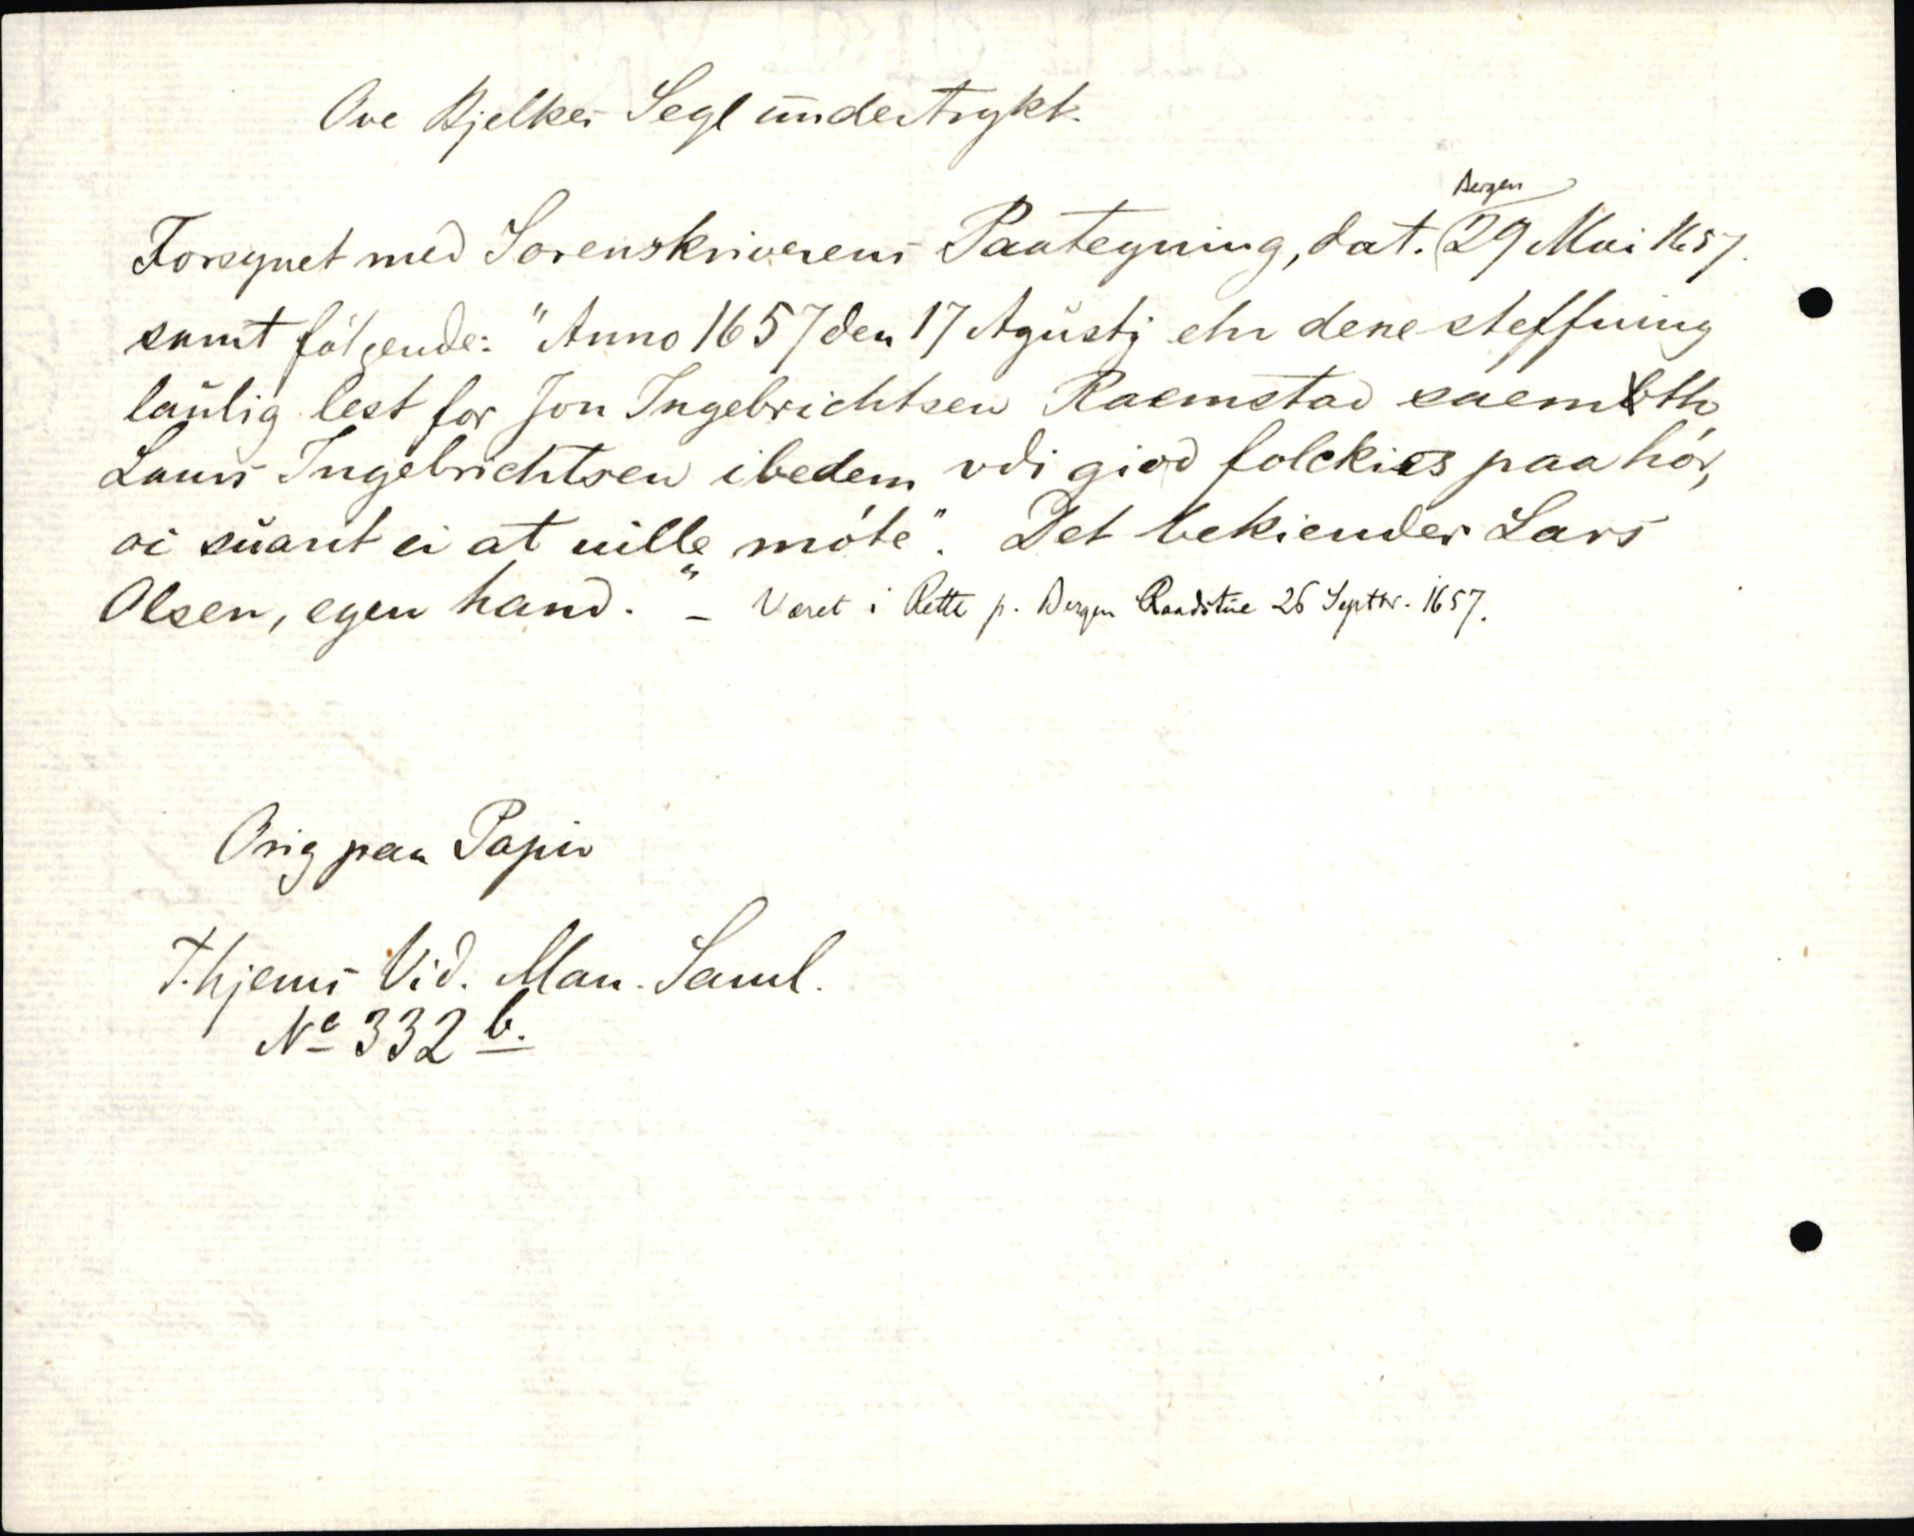 Ove Bjelkes Segl undertrykt.
Bergen
Forsynet med Sorenskriverens Paategning, dat. 29 Mai 1657.
samt følgende: "Anno 1657 den 17 Agustj ehr dene steffning
laulig lest for Jon Ingebrichtsen Raemstad saem oth
Lauris Ingebrichtsen ibedem vdi giod folckies paa hør,
oi suarit ei at uille møte". Det bekiender Lars
Olsen, egen hand." – Været i Rette p. Bergen Raadstue 26 Septbr. 1657.
Orig paa Papir
T.hjems Vid. Man. Saml.
No 332 b.